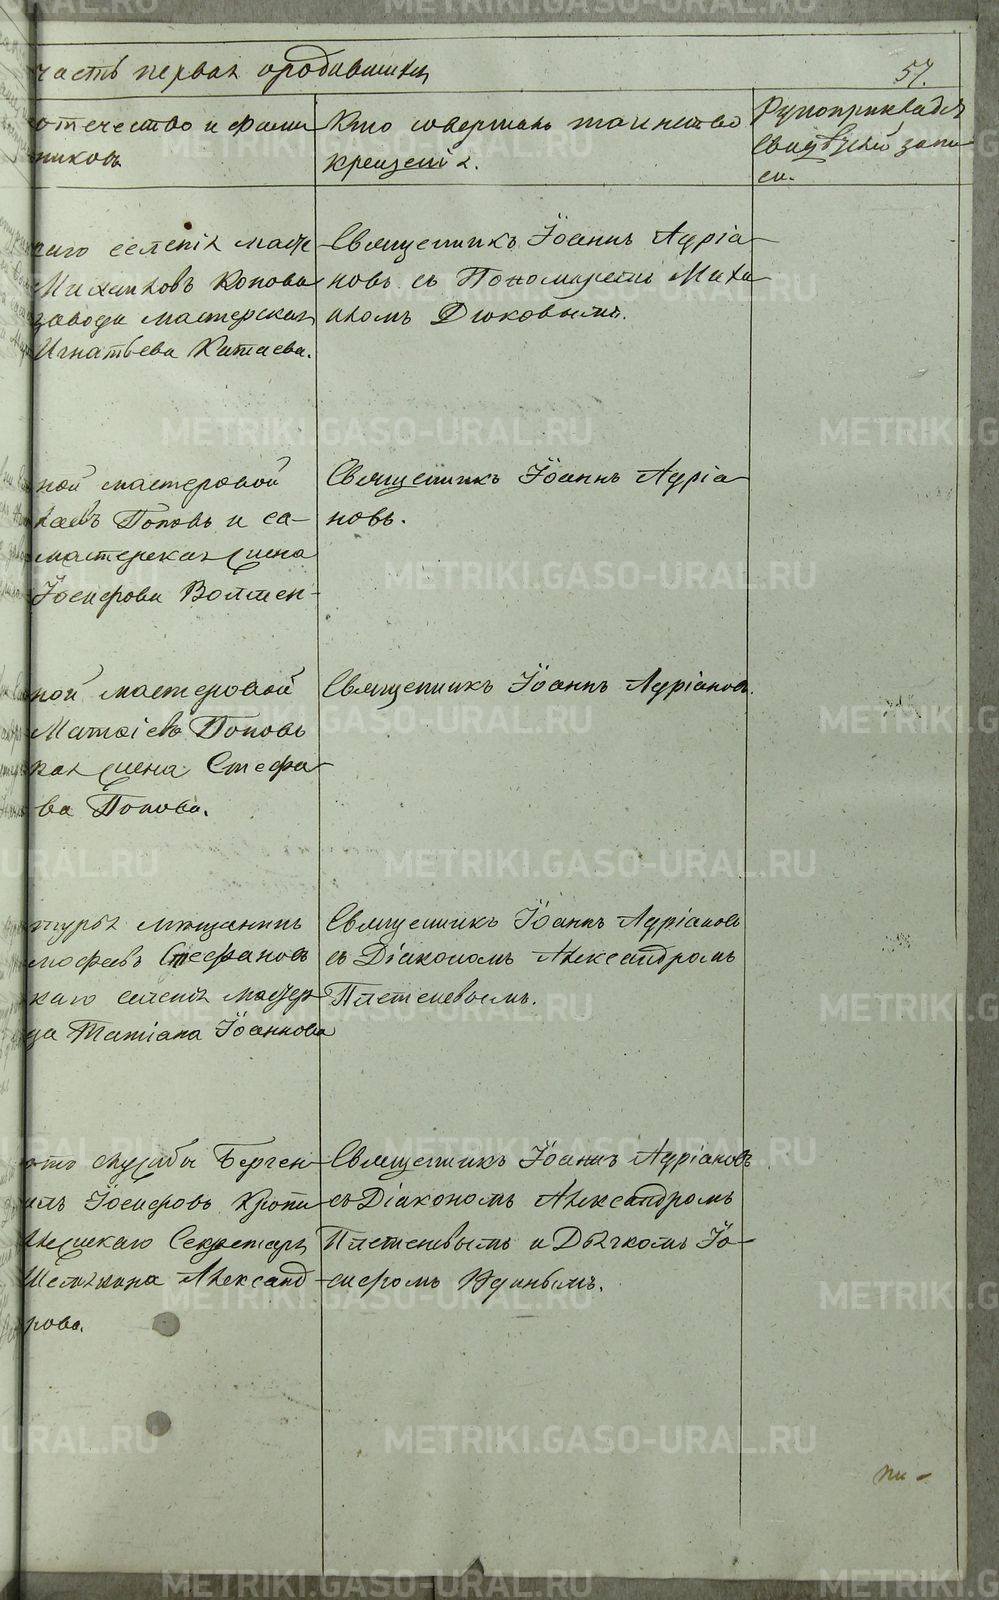 часть первая ородившихся
57.
отечество и фами
никовъ
Кто совершалъ таинство
крещенія.
Рукоприкладст
свидѣтелей запи
си.
каго селенія масте
Михаиловъ Попова
завода мастерская
Игнатьева Китаева.
Священникъ Іоаннъ Адріа
новъ съ Пономаремъ Миха
иломъ Дюковымъ.
ной мастеровой
Поповъ и са-
мастерская жена
Іосифова
Священникъ Іоаннъ Адріа
новъ.
ной мастеровой
Матѳіевъ Поповъ
кая жена Стефа
ва Попова.
Священникъ Іоаннъ Адріановъ.
туры мѣщанинъ
мофеевъ Стефановъ
каго селенія мастер
ца Татіана Іоаннова
Священникъ Іоаннъ Адріановъ
съ Діакономъ Александромъ
Плетеневымъ.
службы Берген
илъ Іосифовъ
Секретаря
Александ
рова.
Священникъ Іоаннъ Адріановъ
съ Діакономъ Александромъ
Плетеневымъ и Дьячкомъ Іо-
сифомъ Юдинымъ.
METRIKI.GASO-URAL.RU